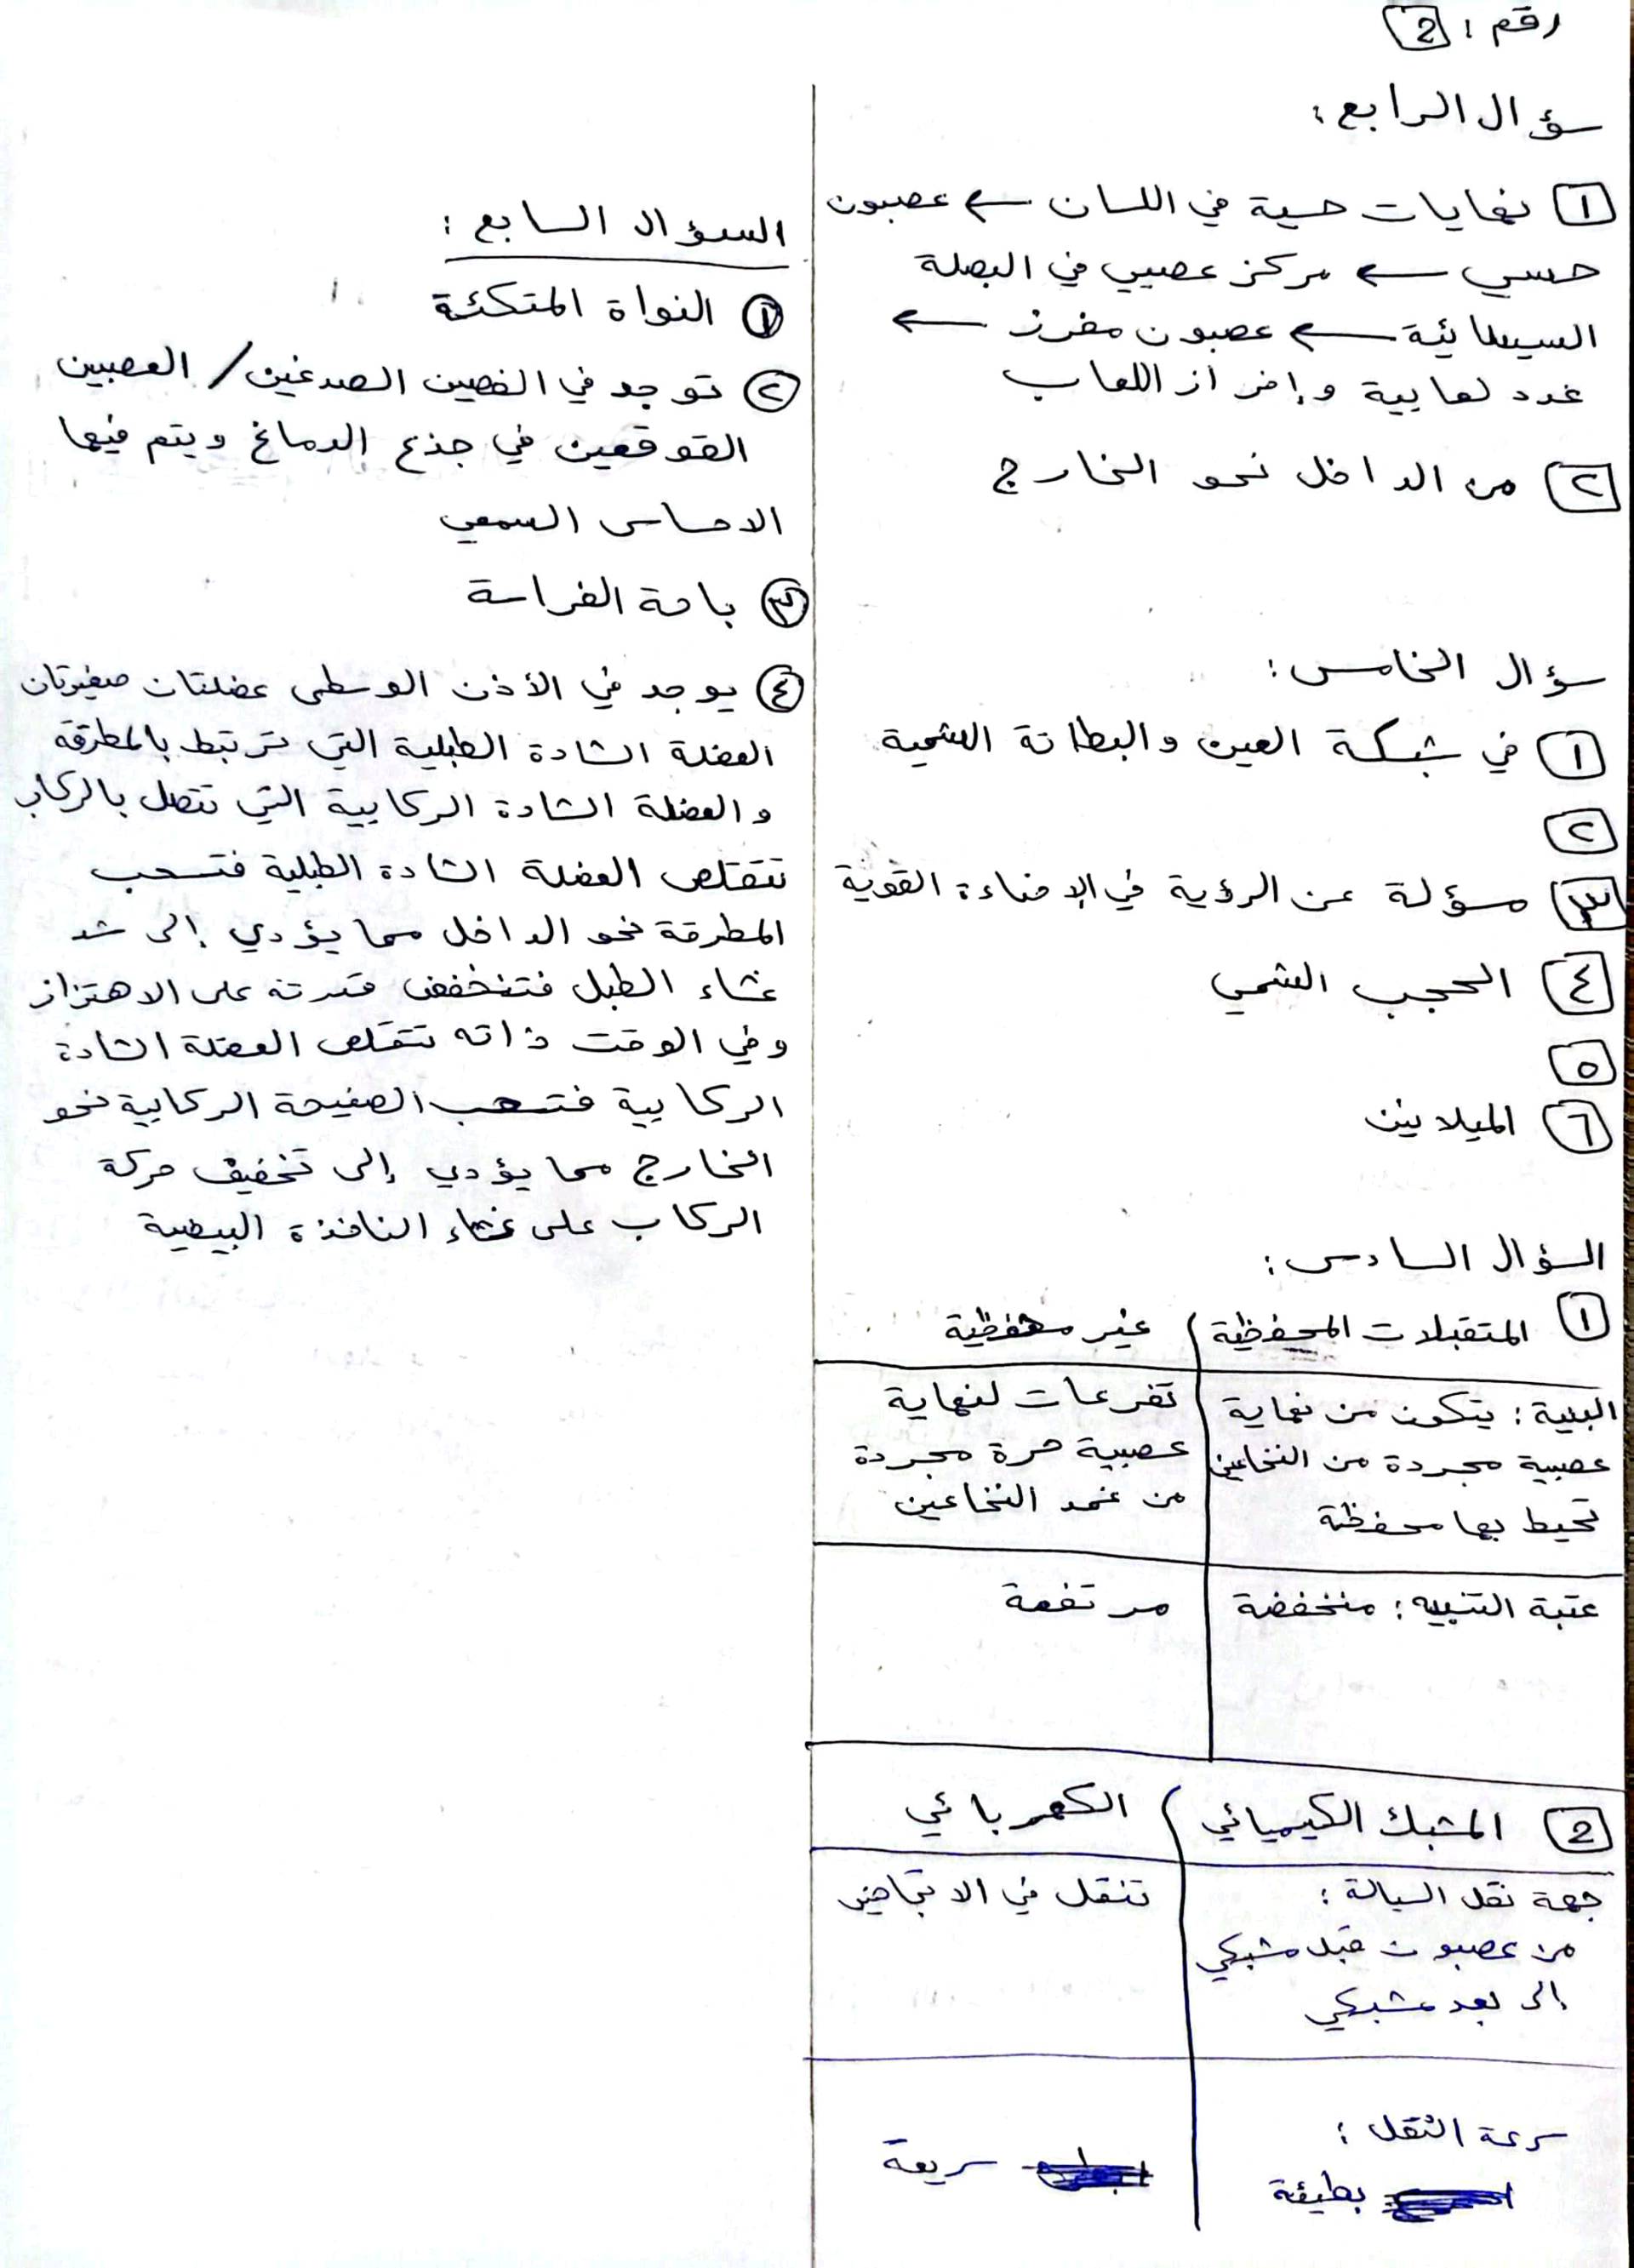 رقم : 2
سؤال الرابع :
1 نهايات حسية في اللسان ← عصبون
حسي ← مركز عصبي في البصلة
السيسائية ← عصبون مفرز ←
غدد لعابية وإفراز اللعاب
٢ من الداخل نحو الخارج
سؤال الخامس :
1 في شبكة العين والبطانة الشمية
٢
٣ مسؤلة عن الرؤية في الإضاءة القوية
٤ الحجب الشمي
٥
٦ الميلانين
السؤال السادس :
1 المتقبلات المحفظية ) غير محفظية
البنية : يتكون من نهاية
عصبية مجردة من النخاعين
تحيط بها محفظة
تفرعات لنهاية
عصبية حرة مجردة
من غمد النخاعين
عتبة التنبيه : منخفضة
مرتفعة
2 المشبك الكيميائي ) الكهربائي
جهة نقل السيالة :
من عصبون قبل مشبكي
إلى بعد مشبكي
تنقل في الاتجاهين
سرعة النقل :
بطيئة
سريعة
السؤال السابع :
١ النواة المتكئة
٢ توجد في الفصين الصدغين / العصبين
القوقعين في جذع الدماغ ويتم فيها
الاحساس السمعي
٣ باحة الفراسة
٤ يوجد في الأذن الوسطى عضلتان صغيرتان
العضلة الشادة الطبلية التي ترتبط بالمطرقة
والعضلة الشادة الركابية التي تتصل بالركاب
تتقلص العضلة الشادة الطبلية فتسحب
المطرقة نحو الداخل مما يؤدي إلى شد
غشاء الطبل فتنخفض قدرته على الاهتزاز
وفي الوقت ذاته تتقلص العضلة الشادة
الركابية فتسحب الصفيحة الركابية نحو
الخارج مما يؤدي إلى تخفيف حركة
الركاب على غشاء النافذة البيضية